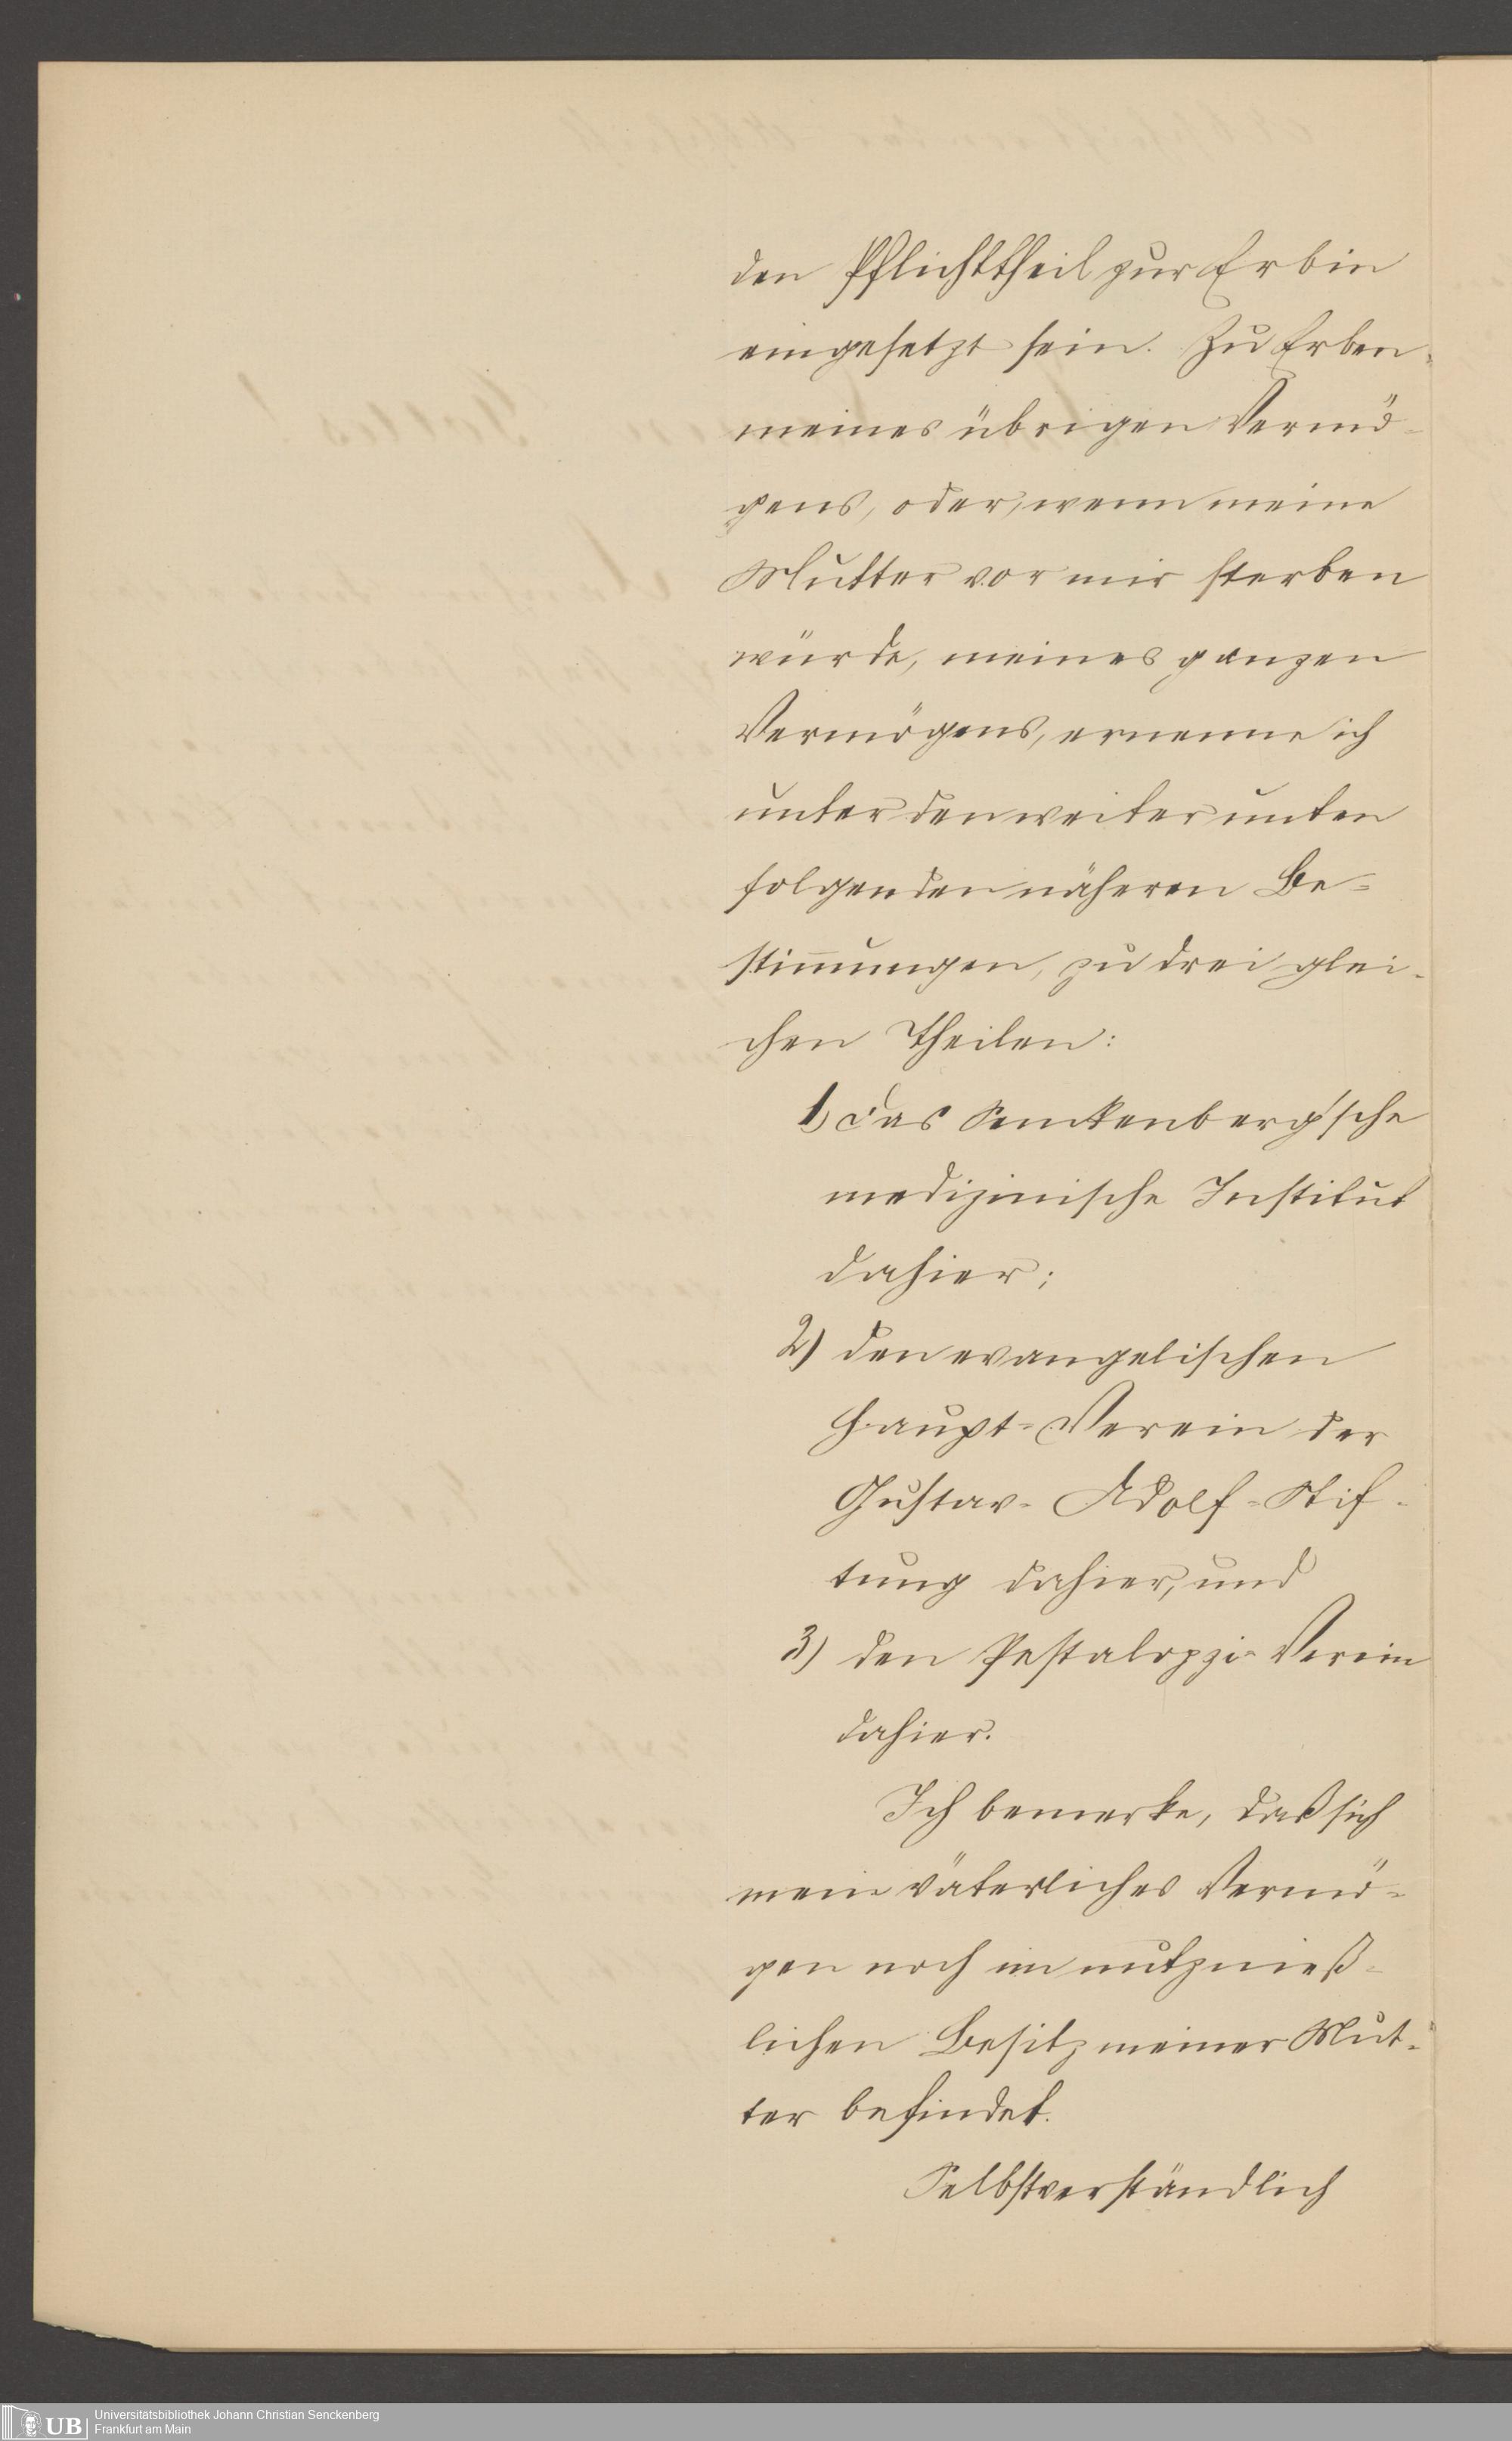 den Pflichttheil zur Erbin
eingesetzt sein. Zu Erben
meines übrigen Vermö-
gens, oder, wenn meine
Mutter vor mir sterben
würde, meines ganzen
Vermögens, ernenne ich
unter den weiter unten
folgenden näheren Be-
stim̅ungen, zu drei glei-
chen Theilen:
1) das Senckenberg'sche
medizinische Institut
dahier;
2) den evangelischen
Haupt-Verein der
Gustav-Adolf-Stif-
tung dahier, und
3) den Pestalozzi-Verein
dahier.
Ich bemerke, daß sich
mein väterliches Vermö-
gen noch im nutznieß-
lichen Besitz meiner Mut-
ter befindet.
Selbstverständlich
UB Universitätsbibliothek Johann Christian Senckenberg
Frankfurt am Main